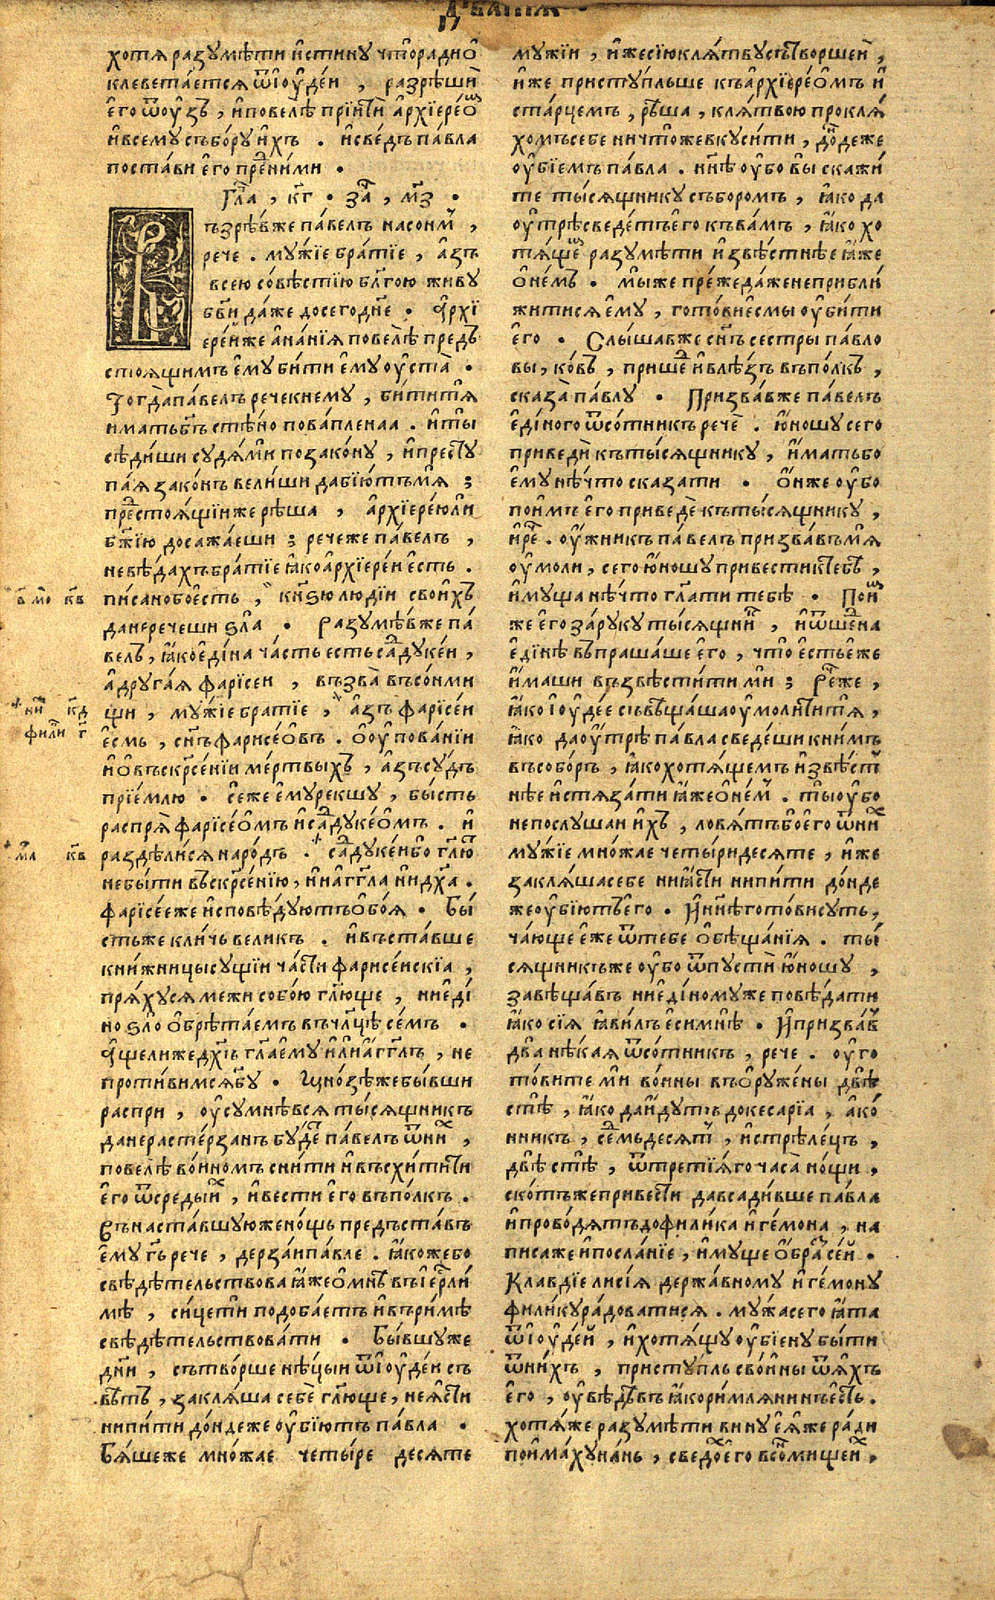 дѣанїа
хотя разумѣти и҆стину что ради о҆
клеветается ѿ і҆оу҆дєи , разрѣши
є҆го ѿ оу҆зъ , и҆повелѣ прїити а҆рхїерео҆м
и҆всему събору и҆хъ . и҆сведъ павла
постави є҆го пред ними .
Гла , кг . за , мз .
Възрѣвже павелъ на сонм ,
рече . мужїе братїе , азъ
всею совѣстїю блгою живу
бви даже досего дне . А҆рхї
ереиже ананїя повелѣ предъ
стоящимъ є҆му бити є҆му оу҆ста .
Тогда павелъ рече кнему , бити тя
имать бгъ стѣно поваплена а . и҆ты
сѣдиши судя ми по закону , и҆престу
пая законъ велиши да бїютъ мя ;
предстоящїиже рѣша , а҆рхїерею ли
бжїю досажаеши ; рече же павелъ ,
невѣдахъ братїе ꙗ҆ко а҆рхїереи є҆сть .
писано бо є҆сть , кнѕю людїи своихъ
да не речеши ѕла . Разумѣвже па
велъ , ꙗ҆ко є҆дина часть есть садукеи ,
а҆другая фарїсеи , възва въ сонми
щи , мужїе братїе , азъ фарїсеи
є҆смь , снъ фарисео҆въ . О҆ оу҆пованїи
и҆ о҆ въскрсенїи мертвыхъ , азъ судъ
прїемлю . Се же є҆му рекшу , бысть
распря фарїсео҆мъ и҆ садукео҆мъ . и҆
раздѣлися народъ . садукеи бо глют
не быти въскрсенїю , ни а҆ггла ни дха .
фарїсеє же и҆сповѣдуютъ о҆боя . Бы
стьже кличь великъ . и҆въставше
книжницы сущїи части фарисеискїа ,
пряхуся межи собою глюще , ни є҆ди
но ѕло о҆брѣтаемъ въ члцѣ семъ .
А҆ще ли же дхъ гла є҆му и҆ли а҆гглъ , не
противимся бгу . Мнозѣ же бывши
распри , оу҆сумнѣвся тысящникъ
да не растерзанъ будет павелъ ѿ них ,
повелѣ воином снити и҆ въсхитити
є҆го ѿ среды их , и҆ вести є҆го въ полкъ .
Въ наставшую же нощь предъставъ
є҆му гь рече , дерзаи павле . ꙗ҆коже бо
свѣдѣтельствова ꙗ҆же о҆ мнѣ въ і҆ерсли
мѣ , сице ти подобаетъ и҆ въ римѣ
свѣдѣтельствовати . Бывшу же
дни , сътворше нѣцыи ѿ і҆оу҆деи съ
вѣтъ , закляша себе глюще , не ясти
ни пити дондеже оу҆бїютъ павла .
Бяшеже множае четыре десяте
в мо кв
ни кд
фили г
мл кв
мужїи , и҆же сїю клятву сътворшеи ,
и҆же приступльше къ а҆рхїерео҆мъ и҆
старцемъ , рѣша , клятвою прокля
хомъ себе ничтоже вкусити , дондеже
оу҆бїемъ павла . ннѣ оу҆бо вы скажи
те тысящнику съборомъ , ꙗ҆ко да
оу҆трѣ сведетъ є҆го къ вамъ , ꙗ҆ко хо
тяще разумѣти и҆звѣстнѣе ꙗ҆же
о҆ немъ . мы же прежедаже не прибли
житися є҆му , готови є҆смы оу҆бити
є҆го . Слышавже снъ сестры павло
вы , ковъ , пришед и҆ влѣзъ въ полкъ ,
сказа павлу . Призвавже павелъ
є҆диного ѿ сотникъ рече . ю҆ношу сего
приведи къ тысящнику , и҆мать бо
є҆му нѣчто сказати . О҆нже оу҆бо
поимъ є҆го приведе къ тысящнику ,
и҆ рече . оу҆жникъ павелъ призвавъ мя
оу҆моли , сего ю҆ношу привести к тебѣ ,
и҆муща нѣчто глати тебѣ . Поим
же є҆го за руку тысящник , и҆ ѿшед на
є҆динѣ въпрашаше є҆го , что є҆сть еже
и҆маши възвѣстити ми ; Рече же ,
ꙗ҆ко і҆оу҆деє съвѣщаша оу҆молити тя ,
ꙗ҆ко да оу҆трѣ павла сведеши к ним
въ соборъ , ꙗ҆ко хотящемъ и҆звѣст
нѣе и҆стязати ꙗ҆же о҆ нем . ты оу҆бо
не послушаи и҆хъ , ловятъ бо є҆го ѿ них
мужїе множае четыридесяте , и҆же
закляша себе ни ꙗ҆сти ни пити донде
же оу҆бїютъ є҆го . И҆ ннѣ готови суть ,
чающе є҆же ѿ тебе о҆бѣщанїя . ты
сящникъ же оу҆бо ѿпусти ю҆ношу ,
завѣщавъ ни є҆диному же повѣдати
ꙗ҆ко сїя ꙗ҆вилъ є҆си мнѣ . И҆ призвав
два нѣкая ѿ сотникъ , рече . оу҆го
товите ми воины въо҆ружены двѣ
стѣ , ꙗ҆ко да и҆дутъ до кесарїа , а҆ ко
нникъ , седмьдесят , и҆ стрѣлецъ ,
двѣстѣ , ѿ третїяго часа нощи ,
скотъ же привести да всадивше павла
и҆ проводятъ до филика и҆гемона , на
писаже и҆ посланїе , и҆муще о҆браз сеи .
Клавдїе лисїя державному и҆гемону
филику радоватися . мужа сего ꙗ҆та
ѿ і҆оу҆деи , и҆ хотящу оу҆бїену быти
ѿ нихъ , приступль с воины ѿяхъ
є҆го , оу҆вѣдѣвъ ꙗ҆ко римлянинъ є҆сть .
хотяже разумѣти вину є҆яже ради
поимаху нань , сведох є҆го в сонмище их ,